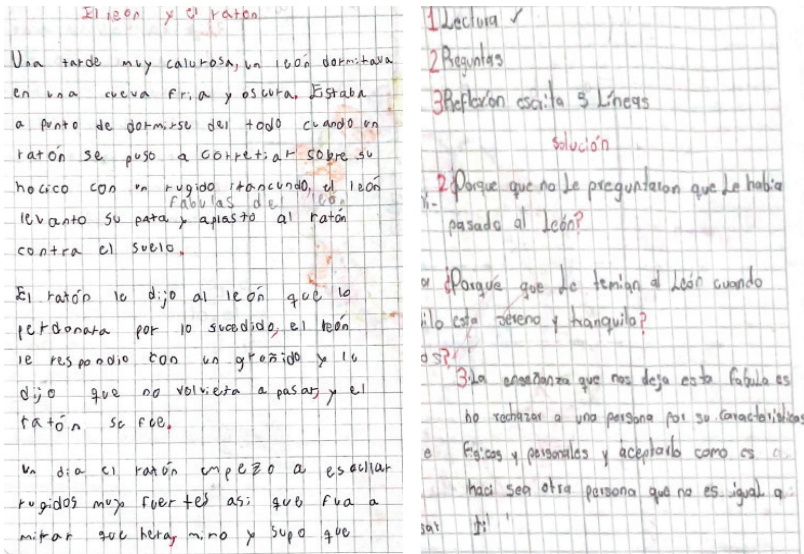 El leon y el ratón
Una tarde muy calurosa, un león dormitava
en una cueva fria y oscura. Estaba
a punto de dormirse del todo cuando un
ratón se puso a corretiar sobre su
hocico con un rugido, el león
fabulas del león
levanto su pata y aplasto al ratón
contra el suelo.
El ratón le dijo al león que lo
perdonara por lo sucedido, el león
le respondio con un greñido y le
dijo que no volviera a pasar, y el
ratón se fue.
Un dia el ratón empezo a esculhar
rugidos muy fuertes asi que fua a
mirar que hera, miro y supo que
1 Lectura ✓
2 Preguntas
3 Reflexión escrita 3 Líneas
solución
2 ¿Porque que no Le preguntaron que Le habia
pasado al León?
¿Porque que Le temian al León cuando
ilo esta sereno y tranquilo?
os?
3. La enseñanza que nos deja esta fabula es
no rechazar a una persona por su caracteristicas
e Fisicas y personales y aceptarlo como es
haci sea otra persona que no es igual a
sar ti